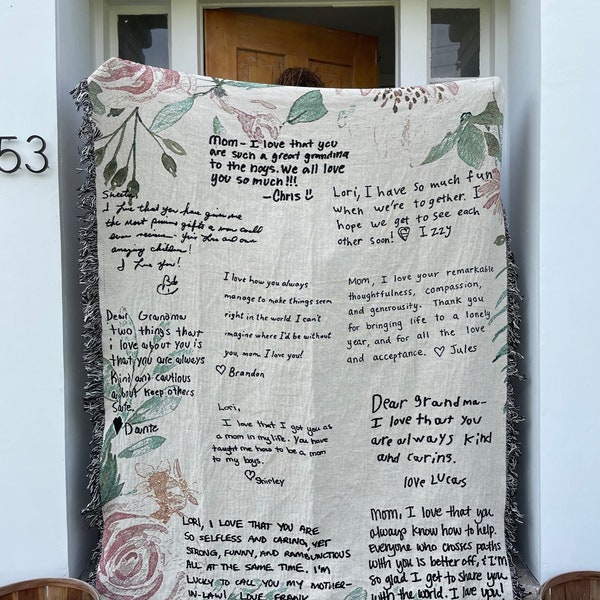 53
Mom- I love that you
are such a great grandma
to the boys. We all love
you so much!!!
-Chris
Lori, I have so much fun
when we're together. I
hope we get to see each
other soon! Izzy
I love that you have given me
the most precious gifts a man could
ever receive- You, Love and our
amazing children!
I Love You!
Bob
I love how you always
manage to make things seem
right in the world. I can't
imagine where I'd be without
you, mom. I love you!
Brandon
Mom, I love your remarkable
thoughtfulness, compassion,
and generousity. Thank you
for bringing life to a lonely
year, and for all the love
and acceptance. Jules
Dear Grandma
two things that
i love about you is
that you are always
Kind and cautious
about keep others
safe.
Dante
Lori,
I love that I got you as
a mom in my life. You have
taught me how to be a mom
to my boys.
Shirley
Dear Grandma-
I love that you
are always kind
and caring.
love Lucas
LORI, I LOVE THAT YOU ARE
SO SELFLESS AND CARING, YET
STRONG, FUNNY, AND RAMBUNCTIOUS
ALL AT THE SAME TIME. I'M
LUCKY TO CALL YOU MY MOTHER-
IN-LAW! LOVE FRANK
Mom, I love that you
always know how to help.
Everyone who crosses paths
with you is better off, & I'm
so glad I get to share you
with the world. I love you!